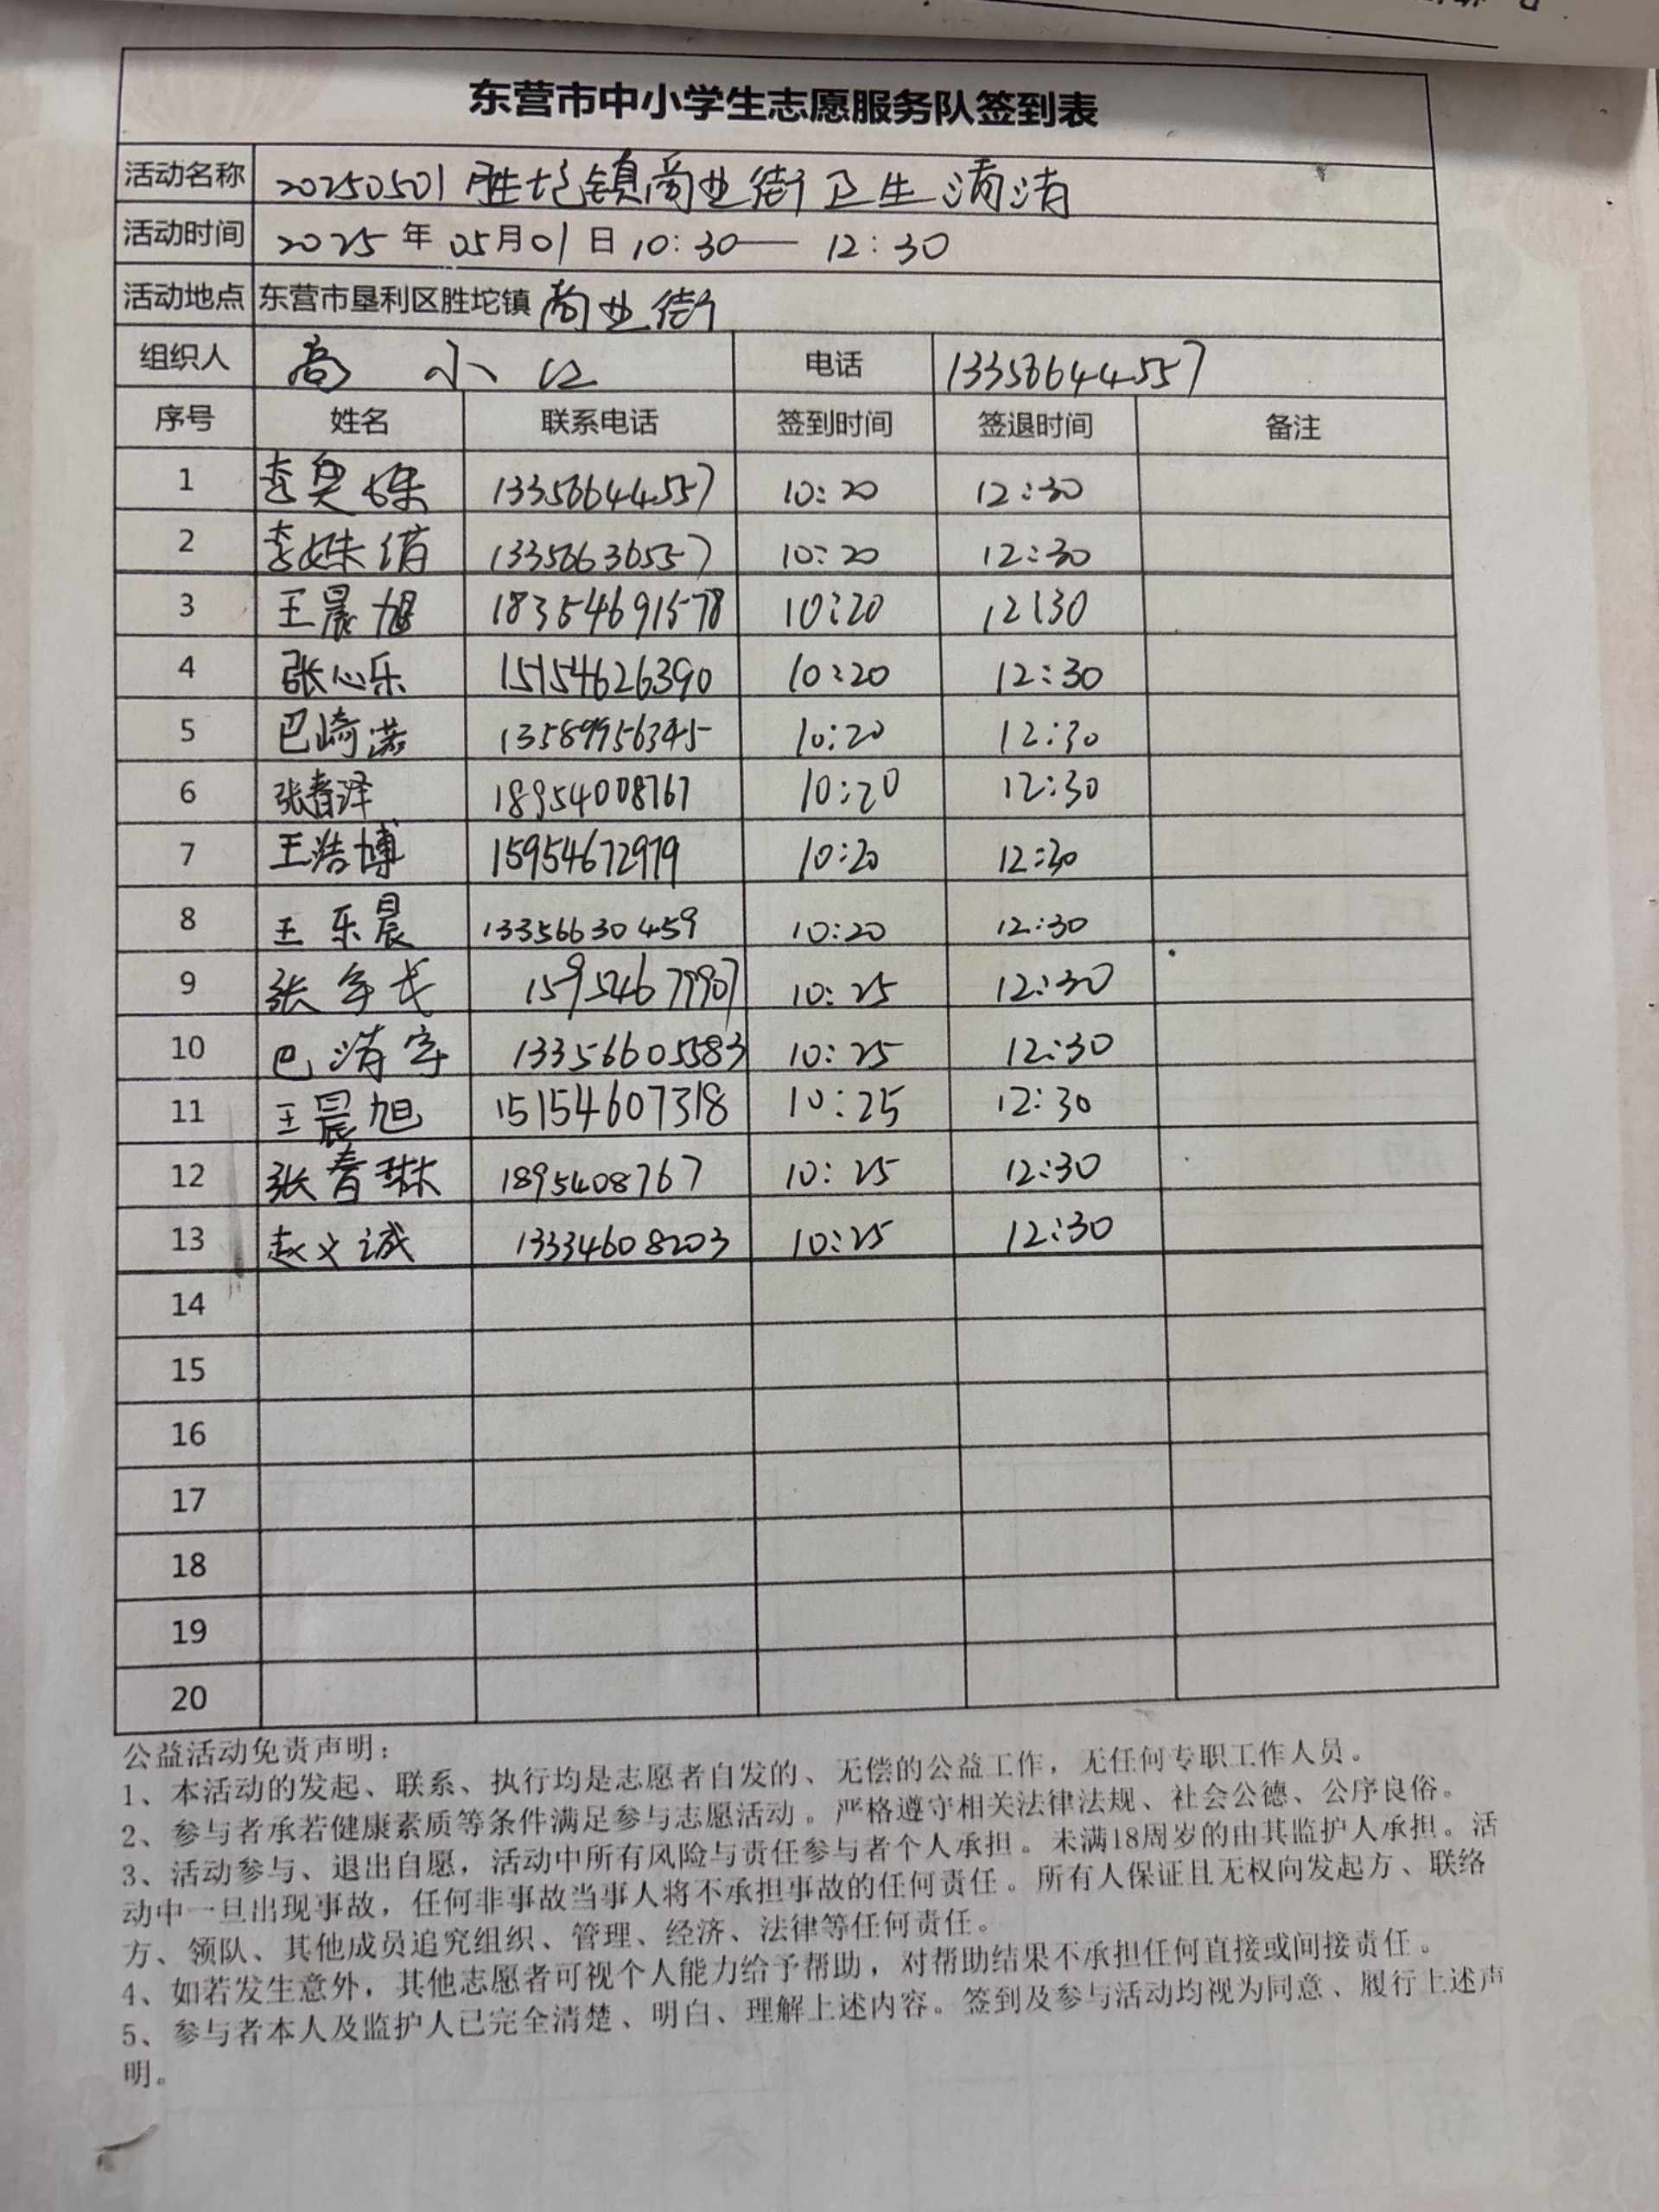 东营市中小学生志愿服务队签到表
活动名称 20250501胜坨镇商业街卫生清洁
活动时间 2025年05月01日10:30—12:30
活动地点 东营市垦利区胜坨镇商业街
组织人 高小 电话 13356644557
序号 姓名 联系电话 签到时间 签退时间 备注
1 李奥姝 13356644557 10:20 12:30
2 李姝 13356636557 10:20 12:30
3 王晨旭 18354691578 10:20 12:30
4 张心乐 15154626390 10:20 12:30
5 巴崎诺 13589956345 10:20 12:30
6 张春泽 18954008767 10:20 12:30
7 王浩博 15954672979 10:20 12:30
8 王乐晨 13356630459 10:20 12:30
9 张 10:25 12:30
10 巴清宇 13356605583 10:25 12:30
11 王晨旭 15154607318 10:25 12:30
12 张春琳 1895408767 10:25 12:30
13 赵文诚 13334608203 10:25 12:30
14
15
16
17
18
19
20
公益活动免责声明：
1、本活动的发起、联系、执行均是志愿者自发的、无偿的公益工作，无任何专职工作人员。
2、参与者承若健康素质等条件满足参与志愿活动。严格遵守相关法律法规、社会公德、公序良俗。
3、活动参与、退出自愿，活动中所有风险与责任参与者个人承担。未满18周岁的由其监护人承担。活
动中一旦出现事故，任何非事故当事人将不承担事故的任何责任。所有人保证且无权向发起方、联络
方、领队、其他成员追究组织、管理、经济、法律等任何责任。
4、如若发生意外，其他志愿者可视个人能力给予帮助，对帮助结果不承担任何直接或间接责任。
5、参与者本人及监护人已完全清楚、明白、理解上述内容。签到及参与活动均视为同意、履行上述声
明。